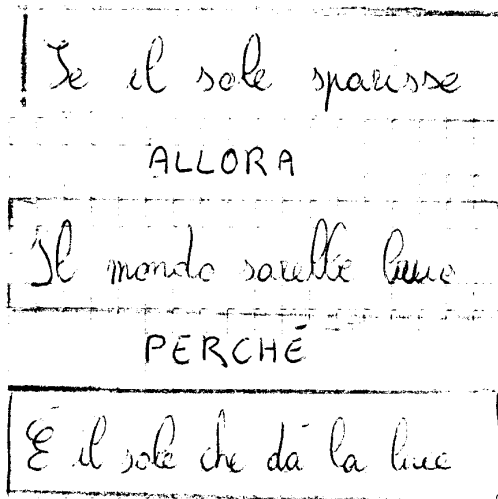 Se il sole sparisse
ALLORA
Il mondo sarebbe
PERCHÉ
È il sole che dà la luce